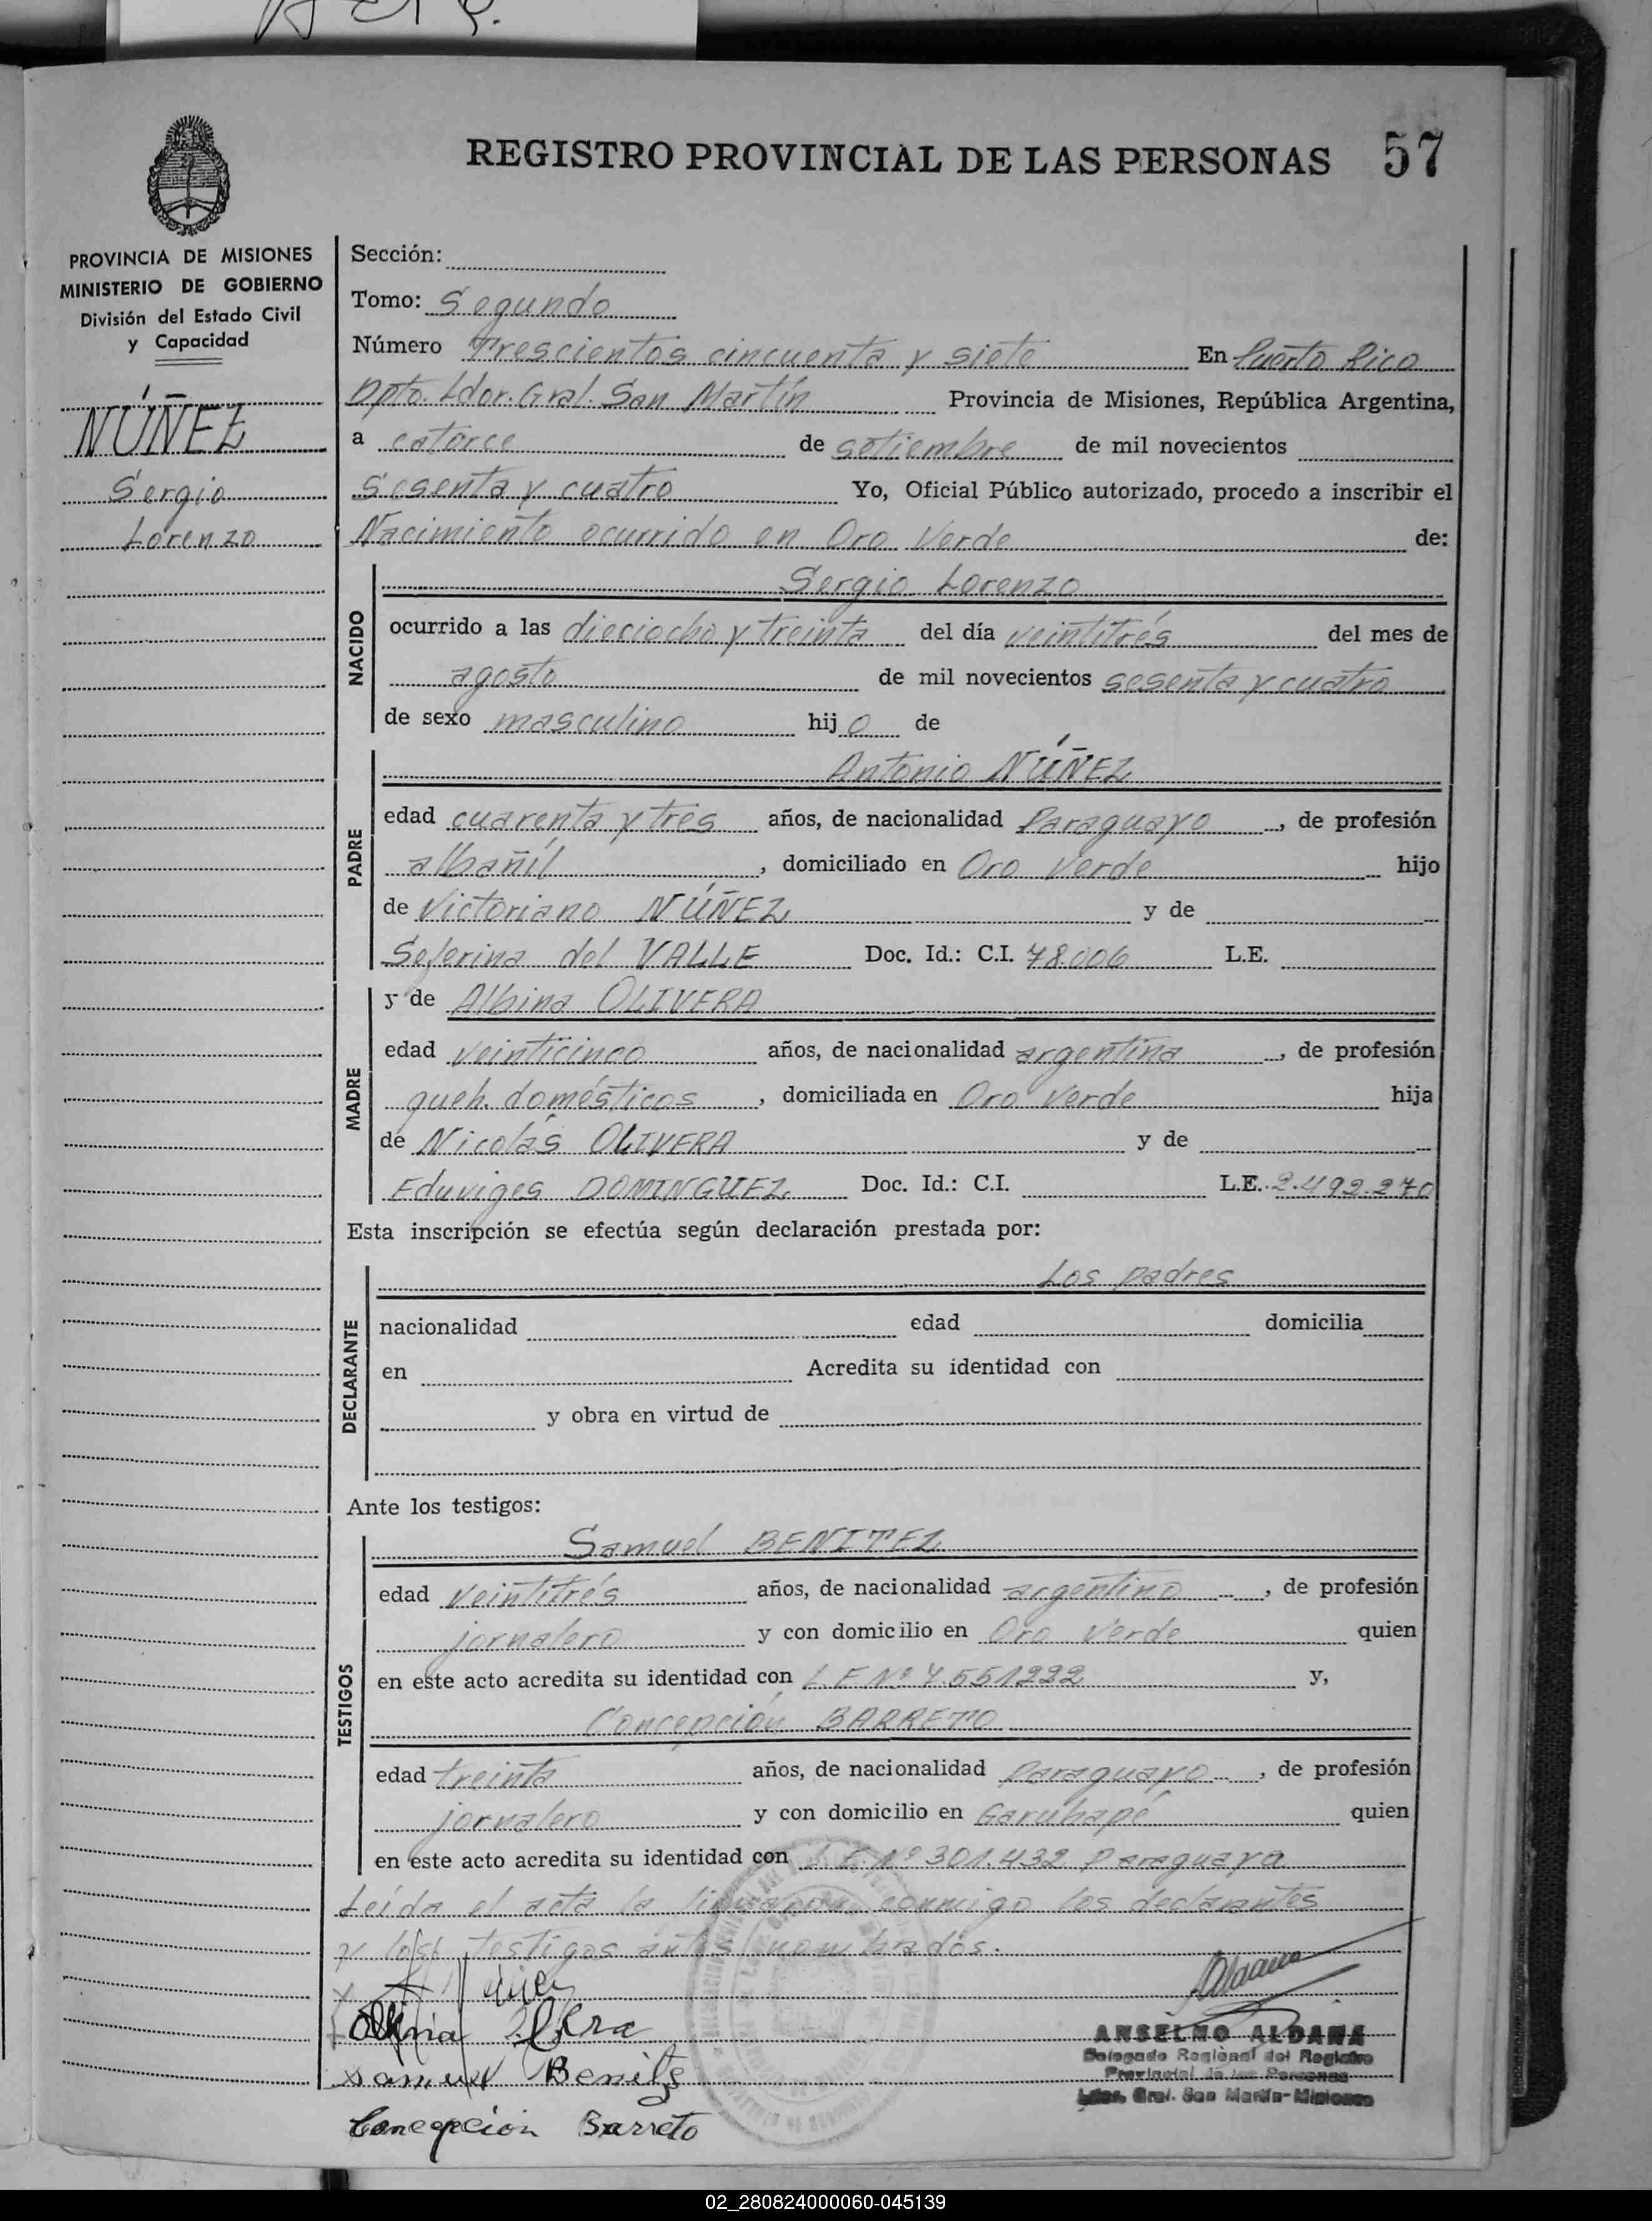 REGISTRO PROVINCIAL DE LAS PERSONAS 57
PROVINCIA DE MISIONES
MINISTERIO DE GOBIERNO
División del Estado Civil
y Capacidad
NÚÑEZ
Sergio
Lorenzo
Sección:
Tomo: Segundo
Número Trescientos cincuenta y siete En Puerto Rico
Dpto. Ldor. Gral. San Martín Provincia de Misiones, República Argentina,
a catorce de setiembre de mil novecientos
Sesenta y cuatro Yo, Oficial Público autorizado, procedo a inscribir el
Nacimiento ocurrido en Oro Verde de:
NACIDO
Sergio Lorenzo
ocurrido a las dieciocho y treinta del día veintitrés del mes de
agosto de mil novecientos sesenta y cuatro
de sexo masculino hijo de
PADRE
Antonio NÚÑEZ
edad cuarenta y tres años, de nacionalidad Paraguayo, de profesión
albañil, domiciliado en Oro Verde hijo
de Victoriano NÚÑEZ y de
Seferina del VALLE Doc. Id.: C.I. 78.006 L.E.
MADRE
y de Albina OLIVERA
edad veinticinco años, de nacionalidad argentina, de profesión
queh. domésticos, domiciliada en Oro Verde hija
de Nicolás OLIVERA y de
Eduviges DOMINGUEZ Doc. Id.: C.I. L.E. 2.492.270
Esta inscripción se efectúa según declaración prestada por:
DECLARANTE
Los padres
nacionalidad edad domicilia
en Acredita su identidad con
y obra en virtud de
Ante los testigos:
TESTIGOS
Samuel BENITEZ
edad veintitrés años, de nacionalidad argentino, de profesión
jornalero y con domicilio en Oro Verde quien
en este acto acredita su identidad con L.E Nº 7.551222 y,
Concepción BARRETO
edad treinta años, de nacionalidad Paraguayo, de profesión
jornalero y con domicilio en Garuhapé quien
en este acto acredita su identidad con Nº 301.432 Paraguaya
Leída el acta la firmaron conmigo los declarantes
y los testigos antes nombrados.
Samuel Benitez
Concepcion Barreto
ANSELMO ALDANA
Delegado Regional del Registro
Provincial de las Personas
Ldor. Gral. San Martín - Misiones
02_280824000060-045139